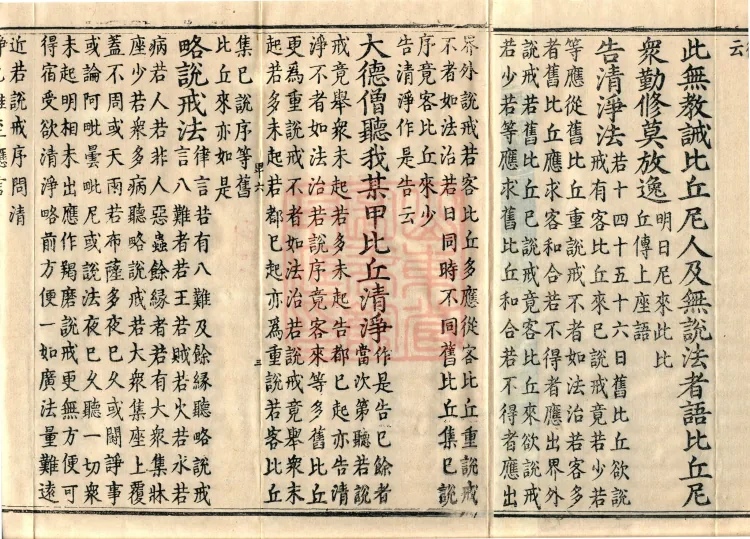 云
此無教誡比丘尼人及無說法者語比丘尼
衆勤修莫放逸明日尼來此比
丘傳上座語
告清淨法若十四十五十六日舊比丘欲說
戒有客比丘來已說戒竟若少若
等應從舊比丘重說戒不者如法治若客多
者舊比丘應求客和合若不得者應出界外
說戒若舊比丘已說戒竟客比丘來欲說戒
若少若等應求舊比丘和合若不得者應出
界外說戒若客比丘多應從客比丘重說戒
不者如法治若日同時不同舊比丘集已說
序竟客比丘來少
告清淨作是告云
大德僧聽我某甲比丘清淨作是告已餘者
當次第聽若說
戒竟舉衆未起若多未起告都已起亦告清
淨不者如法治若說序竟客來等多舊比丘
更爲重說戒不者如法治若說戒竟舉衆未
起若多未起若都已起亦爲重說若客比丘
集已說序等舊
比丘來亦如是
甲六
三
略說戒法律言若有八難及餘緣聽略說戒
言八難者若王若賊若火若水若
病若人若非人惡蟲餘緣者若有大衆集牀
座少若衆多病聽略說戒若大衆集座上覆
蓋不周或天雨若布薩多夜已久或鬪諍事
或論阿毗曇毗尼或說法夜已久聽一切衆
未起明相未出應作羯磨說戒更無方便可
得宿受欲清淨略前方便一如廣法量難遠
近若說戒序問清